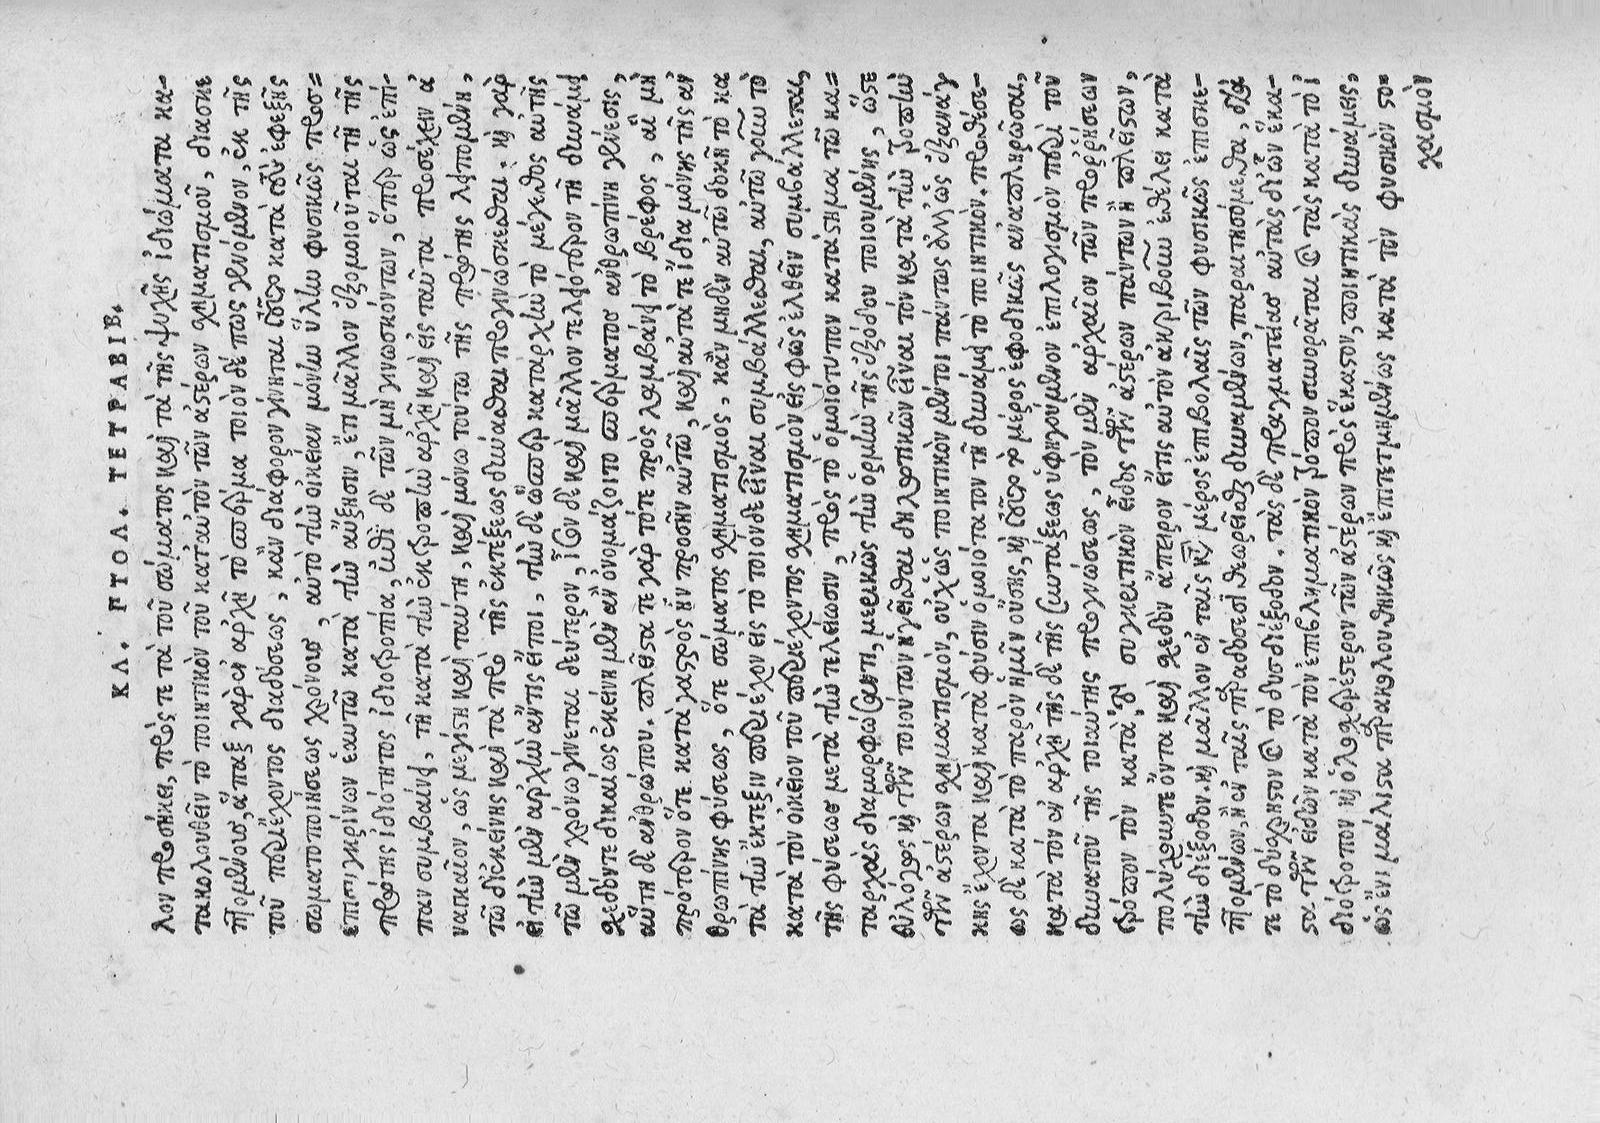 ΚΛ. ΠΤΟΛ. ΤΕΤΡΑΒΙΒ.
λον προσήκει, πρός τε τὰ τοῦ σώματος καὶ τὰ τῆς ψυχῆς ἰδιώματα κα-
τακολουθεῖν τὸ ποιητικὸν τοῦ κατ' αὐτὸν τῶν ἀστέρων χηματισμοῦ, διασκε
πτομένους, ἅπαξ γὰρ ἐν ἀρχῇ τὸ σπέρμα ποιόν δέ πως γενόμενον, ἐκ τῆς
τοῦ περιέχοντος διαδόσεως, κἂν διάφορον γίνηται τοῦτο κατὰ τὸν ἐφεξῆς
σωματοποιήσεως χρόνοις, αὐτὸ τὴν οἰκείαν μόνην ὕλην φυσικῶς προσ=
επισυγκρίνων ἑαυτῷ κατὰ τὴν αὔξησιν, ἔτι μᾶλλον ἐξομοιοῦται τῇ τῆς
πρώτης ἰδιότητος ἰδιοτροπία, ἐπὶ δὲ τῶν μὴ γινωσκόντων, ὅπερ ὡς ἐπί-
παν συμβαίνει, τῇ κατὰ τὴν ἐκτροπὴν ἀρχῇ καὶ εἰς ταῦτα προσέχειν ἀ
ναγκαῖον, ὡς μεγίστη καὶ ταύτῃ, καὶ μόνῳ τούτῳ τῆς πρώτης λειπομένῃ,
τῷ δι' ἐκείνης καὶ τὰ πρὸ τῆς ἐκτέξεως δύνασθαι προγνώσκεσθαι. καὶ γὰρ
εἰ τὴν μὲν ἀρχὴν ἄν τις εἴποι, τὴν δὲ ὥσπερ καταρχὴν τὸ μέγεθος αὐτῆς
τῷ μὲν χρόνῳ γίνεται δεύτερον, ἴσον δὲ καὶ μᾶλλον τελειότερον τῇ δυνάμει
χεδόν τε δικαίως ἐκείνη μὲν ἂν ὀνομάζοιτο σπέρματος ἀνθρωπίνη γένεσις,
αὕτη δὲ ἀνθρώπου. πλεῖστά τε γὰρ τότε προσλαμβάνει τὸ βρέφος, ἃ μὴ
πρότερον ὅτε κατὰ γαστρὸς ἦν προσῆν αὐτῷ, καὶ αὐτά τε ἴδια μόνης τῆς ἀν
θρωπίνης φύσεως, ὅ τε σώματος χηματισμὸς, κἂν μηδὲν αὐτῷ δοκῇ τὸ κα
τὰ τὴν ἔκτεξιν περιέχον εἰς τὸ τοιόνδε εἶναι συμβάλλεσθαι, αὐτῷ γοῦν τῷ
κατὰ τὸν οἰκεῖον τοῦ περιέχοντος χηματισμὸν εἰς φῶς ἐλθεῖν συμβάλλεται,
τῆς φύσεως μετὰ τὴν τελείωσιν, πρὸς τὸ ὁμοιότυπον κατάστημα τῷ κα=
ταρχὰς διαμορφώσαντι, μερικῶς τὴν ὁρμὴν τῆς ἐξόδου ποιουμένης, ὥστε
τῶν ἀστέρων χηματισμὸν, οὐχ ὡς ποιητικὸν μέντοι πάντως ἀλλ' ὡς ἐξανάγ
κης ἔχοντα καὶ κατὰ φύσιν ὁμοιότατον τῇ δυνάμει τὸ ποιητικόν. προθέσε-
ως δὲ κατὰ τὸ παρὸν ἡμῖν οὔσης, καὶ τοῦτο τὸ μέρος ἐφοδικῶς ἀναπληρῶσαι,
κατὰ τὸν ἐν ἀρχῇ τῆσδε τῆς συντάξεως ὑφηγούμενον ἐπιλογισμὸν περὶ τοῦ
δυνατοῦ τῆς τοιαύτης προγνώσεως, τὸν μὲν ἀρχαῖον τῶν προρρήσεων
τρόπον τὸν κατὰ τὸ συγκρατικὸν εἶδος τῶν ἀστέρων πάντων ἢ πλείστων,
πολύχουν τε ὄντα καὶ χεδὸν ἄπειρον εἴ τις αὐτὸν ἀκριβοῦν ἐθέλει κατὰ
τὴν διέξοδον. καὶ μᾶλλον ἐν ταῖς κατὰ μέρος ἐπιβολαῖς τῶν φυσικῶς ἐπισκε-
πτομένων, ἢ ἐν ταῖς παραδόσεσι θεωρεῖσθαι δυναμένων, παραιτησόμεθα, διά
τε τὸ δύσχρηστον καὶ τὸ δυσδιέξοδον. τὰς δὲ πραγματείας αὐτὰς δι' ὧν ἕκα-
στα τῶν εἰδῶν κατὰ τὸν ἐπιβληματικὸν τρόπον συνορᾶται καὶ τὰς κατὰ τὸ ἰ
διότροπον καὶ ὁλοχερέστερον τῶν ἀστέρων πρὸς ἕκαστον, ποιητικὰς δυνάμεις,
ὡς ἔνι μάλιστα παρακολουθητικῶς καὶ ἐπιτετμημένως κατὰ τὸν φυσικὸν στο-
χασμὸν